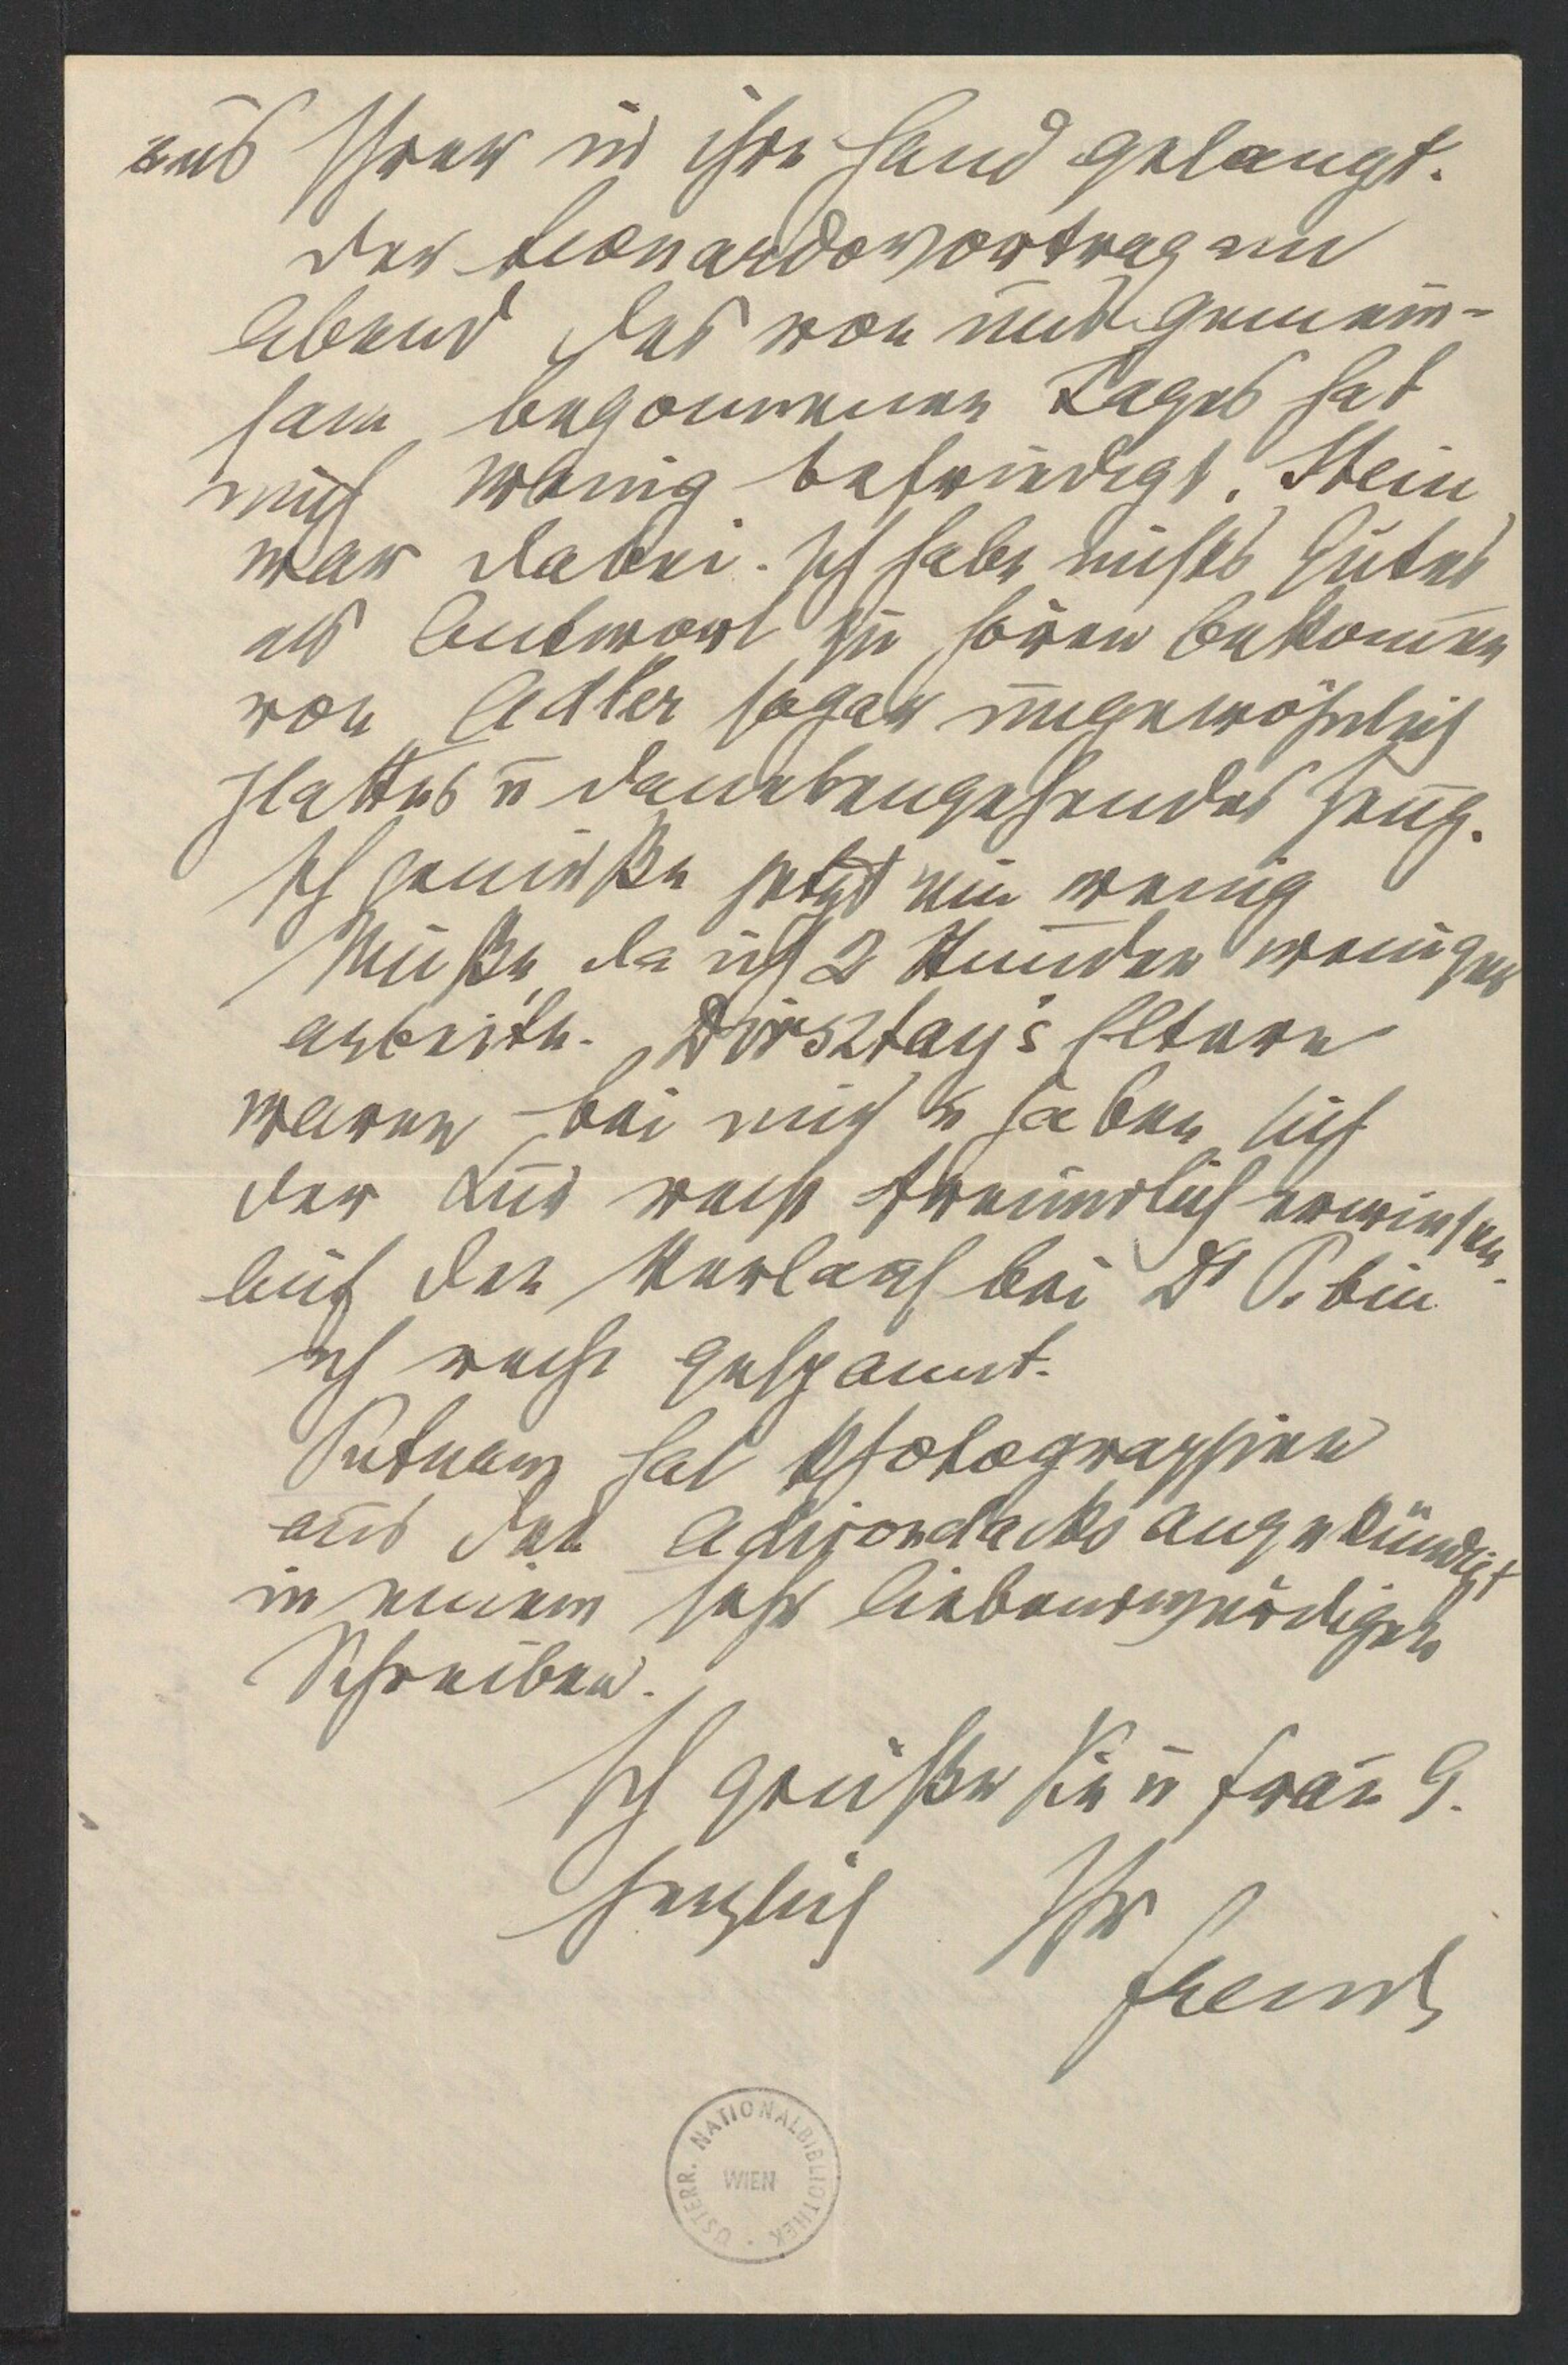 aus Ihrer in ihre Hand gelangt.
Der Leonardovortrag am
Abend des von uns gemein-
sam begonnenen Tages hat
mich wenig befriedigt. Stein
war dabei. Ich habe nichts Gutes
als Antwort zu hören bekommen
von Adler sogar ungewöhnlich
Plattes u danebengehendes Zeug.
Ich genieße jetzt ein wenig
Muße, da ich 2 Stunden weniger
arbeite. Dirsztay's Eltern
waren bei mich u haben sich
der Kur recht freundlich erwiesen.
Auf den Verlauf bei Dr P. bin
ich recht gespannt.
Putnam hat Photographien
aus den Adirondacks angekündigt
in einem sehr liebenswürdigen
Schreiben.
Ich grüße Sie u Frau G.
herzlich Ihr
Freud
ÖSTERR. NATIONALBIBLIOTHEK
WIEN